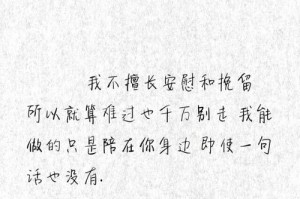 我不擅长安慰和挽留
所以就算难过也千万别走 我能
做的只是陪在你身边 即使一句
话也没有.